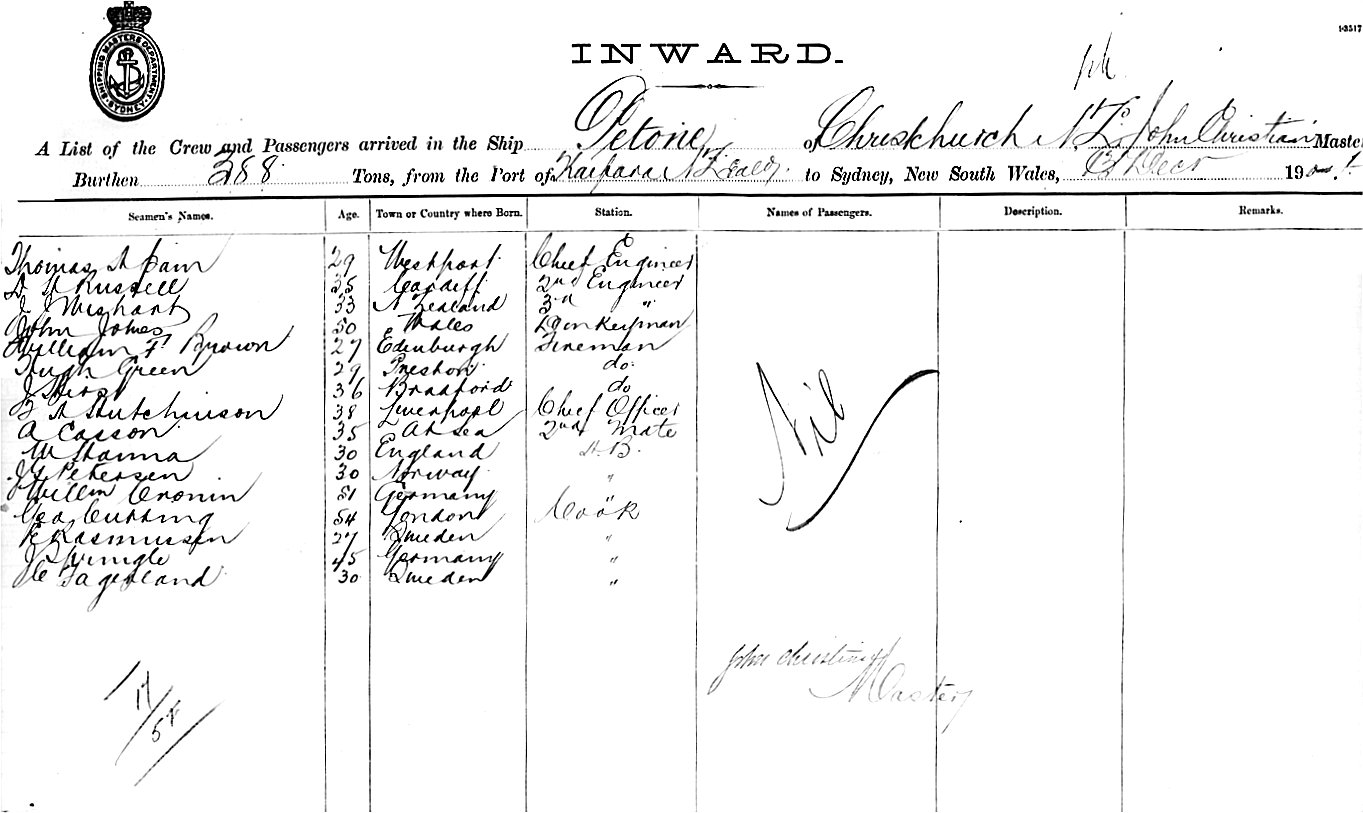 13517
SHIPPING MASTERS DEPARTMENT
SYDNEY
INWARD.
A List of the Crew and Passengers arrived in the Ship Petone of Christchurch N.Z. John Christian Master
Burthen 388 Tons, from the Port of Kaipara N Zeald to Sydney, New South Wales, Decr 190
Seamen's Names. Age. Town or Country where Born. Station. Names of Passengers. Description. Remarks.
Thomas 29 Westport Chief Engineer
Russell 25 Cardiff 2nd Engineer
J Wishart 33 N Zealand 3rd "
John Jones 50 Wales Donkeyman
William F Brown 27 Edinburgh Fireman
Hugh Green 29 Preston do
J 36 Bradford do
Hutchinson 38 Liverpool Chief Officer
A Casson 35 At Sea 2nd Mate
W Hanna 30 England A.B.
Petersen 30 Norway "
Willm Cronin 51 Germany
Geo Cutting 54 London Cook
Rasmussen 27 Sweden "
45 Germany "
30 Sweden "
Nil
John Christian
Master
17/58